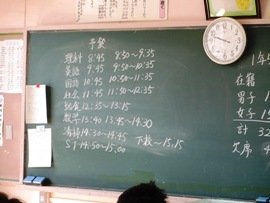 予定
理科 8:45 8:50~9:35
英語 9:45 9:50~10:35
国語 10:45 10:50~11:35
社会 11:45 11:50~12:35
給食 12:35~13:15
数学 13:40 13:45~14:30
清掃 14:30~14:45
ST 14:50~15:00 下校~15:15
1年
在籍
男子
女子
計 32
欠席